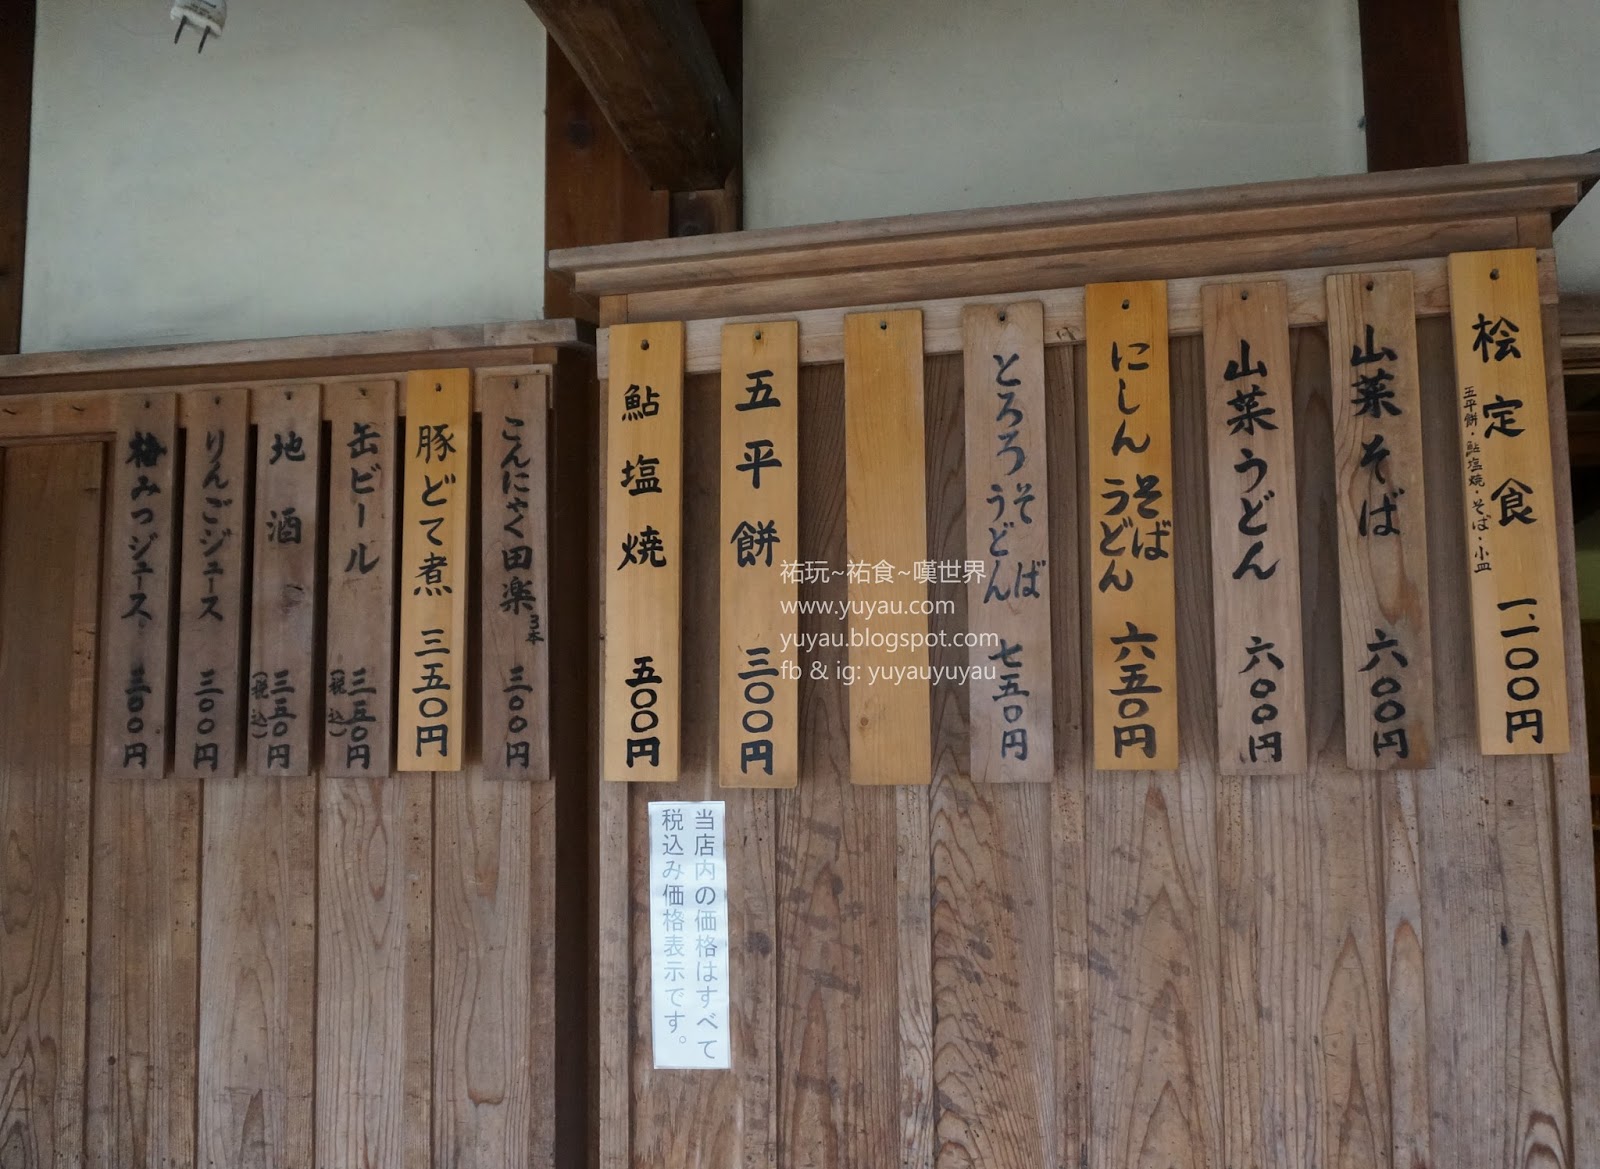 桧定食
五平餅・鮎塩焼・そば・小皿
一、一００円
山菜そば
六００円
山菜うどん
六００円
にしんそば
うどん
六五０円
とろろそば
うどん
七五０円
五平餅
三００円
鮎塩焼
五００円
こんにゃく田楽
3本
三００円
豚どて煮
三五０円
缶ビール
三五０円
(税込)
地酒
三五０円
(税込)
りんごジュース
三００円
梅みつジュース
三００円
当店内の価格はすべて
税込み価格表示です。
祐玩~祐食~嘆世界
www.yuyau.com
yuyau.blogspot.com
fb & ig: yuyauyuyau